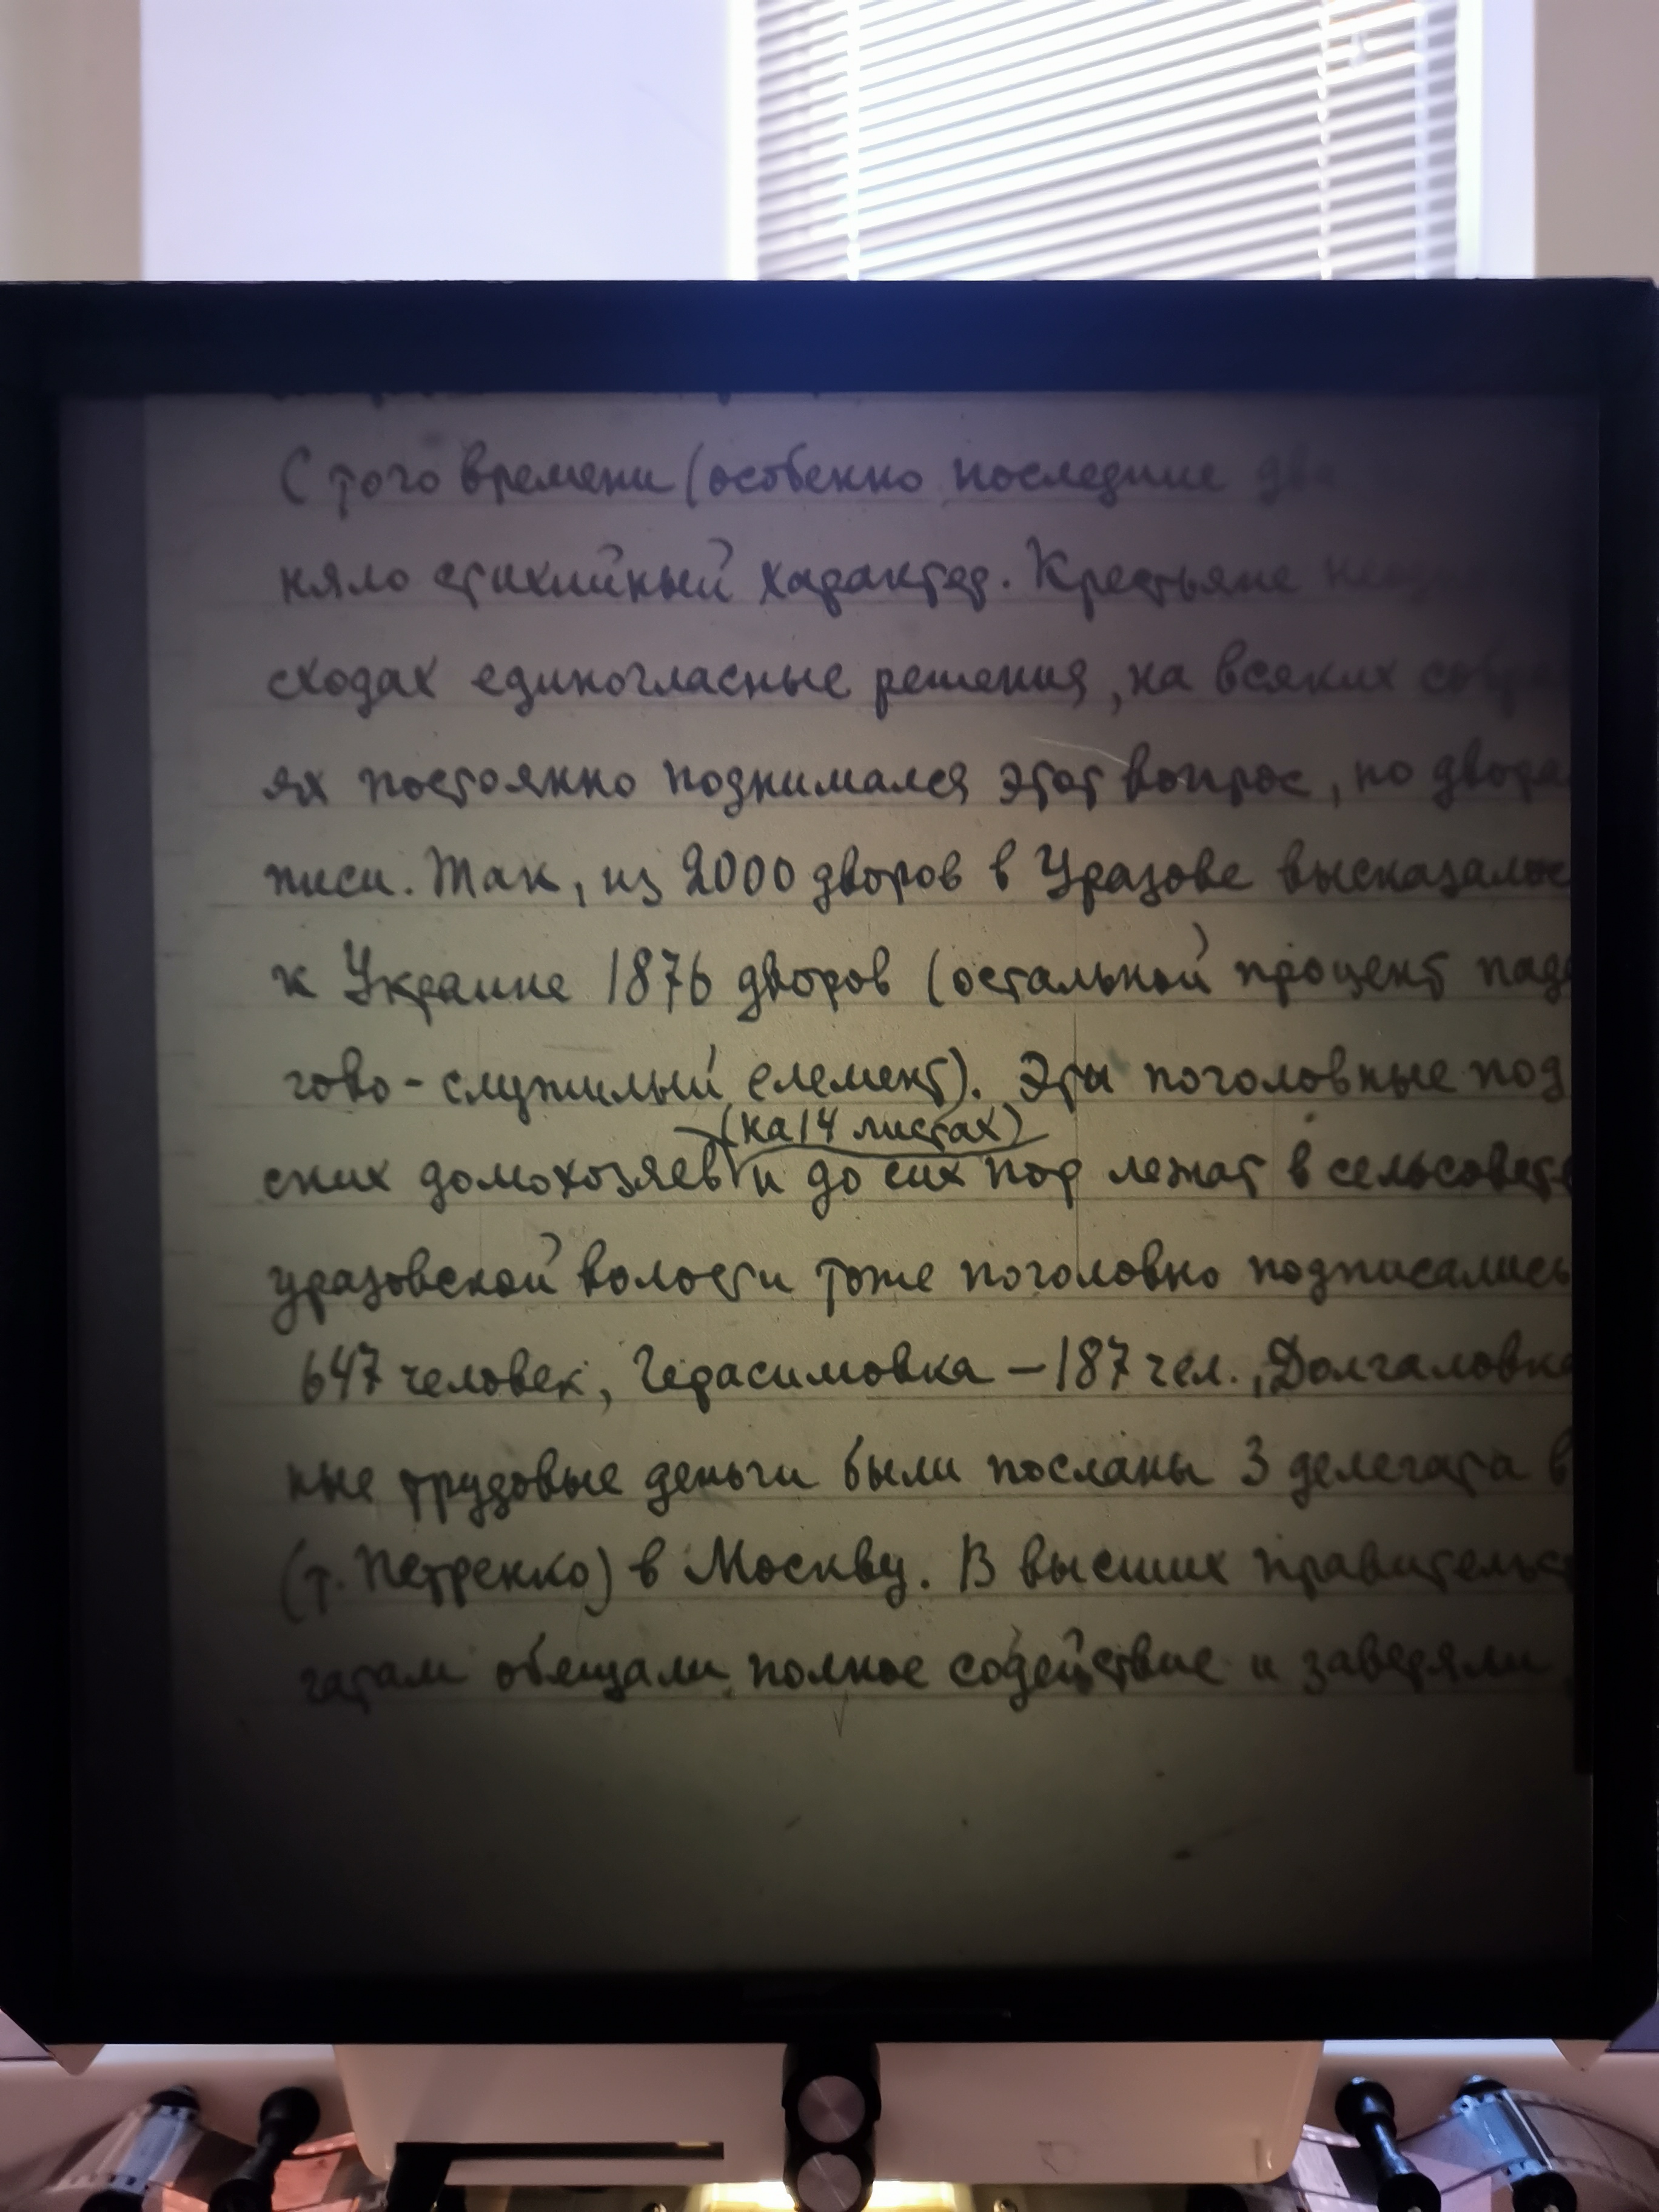 С того времени (особенно последние два
няло стихийный характер. Крестьяне
сходах единогласные решения, на всяких собра
ях постоянно поднимался этот вопрос, по двора
писи. Так, из 2000 дворов в Уразове высказалос
к Украине 1876 дворов (остальной процент пада
гово-служилый елемент). Эти поголовные под
(на 14 листах)
ских домохозяев и до сих пор лежат в сельсовете
уразовской волости тоже поголовно подписались
647 человек, Герасимовка – 187 чел., Долгаловка
ные трудовые деньги были посланы 3 делегата в
(т. Петренко) в Москву. В высших правительст
гатам обещали полное содействие и заверяли